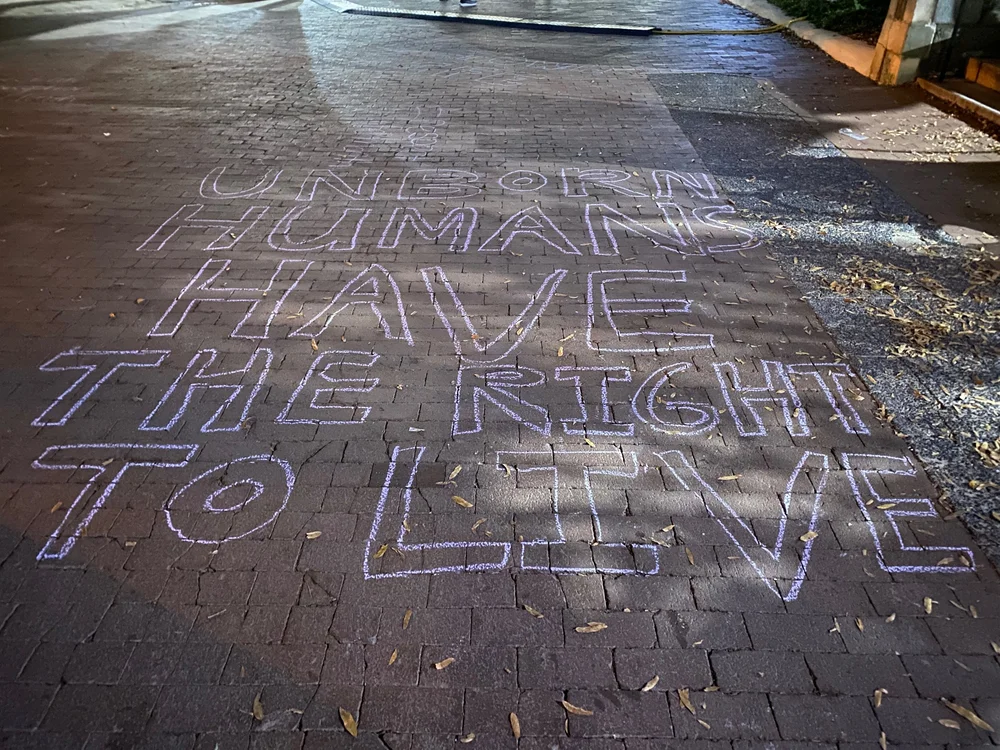 UNBORN
HUMANS
HAVE
THE RIGHT
TO LIVE